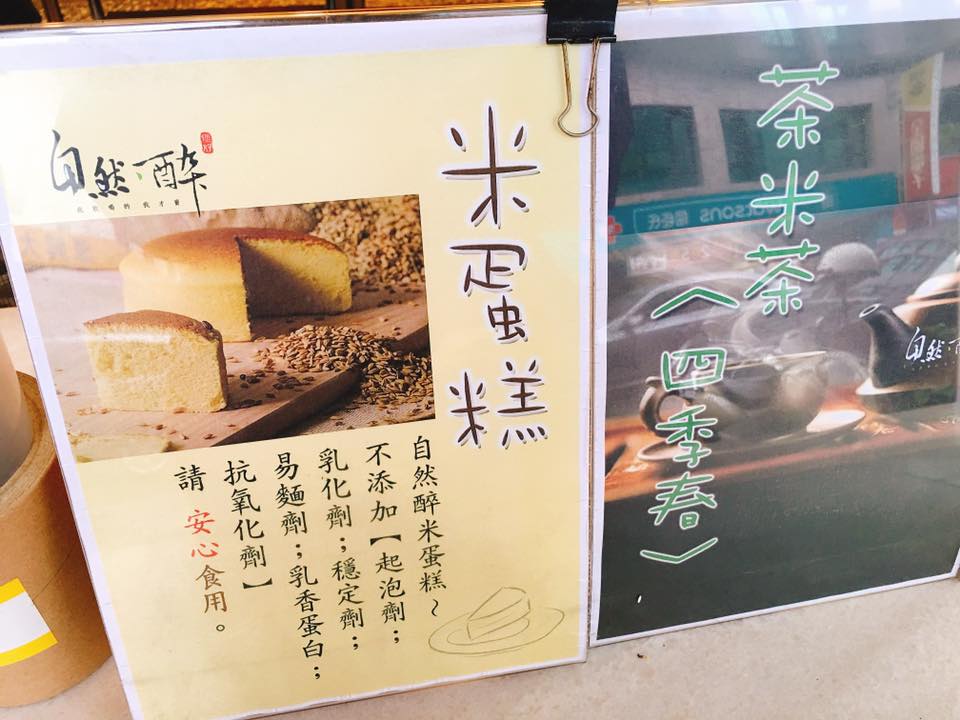 自然醉
米蛋糕
自然醉米蛋糕~
不添加【起泡劑；
乳化劑；穩定劑；
易麵劑；乳香蛋白；
抗氧化劑】
請 安心食用。
茶米茶
〈四季春〉
自然